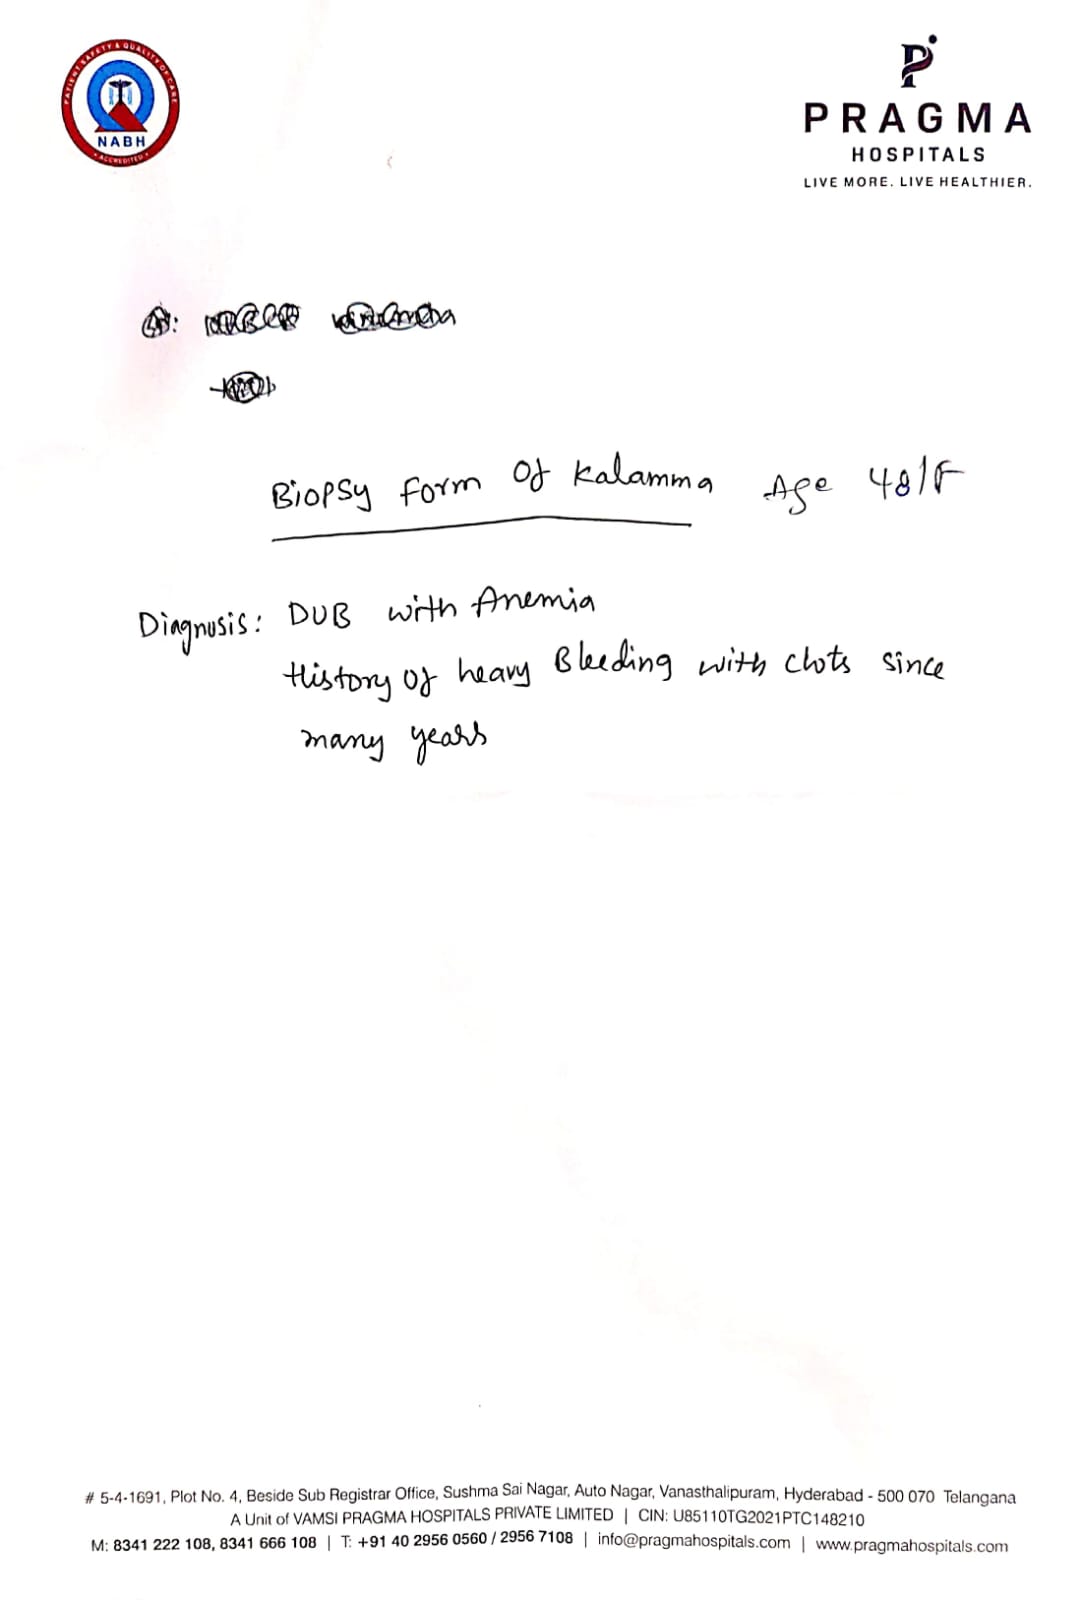 PATIENT SAFETY & QUALITY OF CARE
NABH
• ACCREDITED •
P
PRAGMA
HOSPITALS
LIVE MORE. LIVE HEALTHIER.
Biopsy form Of Kalamma Age 48/F
Diagnosis: DUB with Anemia
History of heavy Bleeding with clots since
many years
# 5-4-1691, Plot No. 4, Beside Sub Registrar Office, Sushma Sai Nagar, Auto Nagar, Vanasthalipuram, Hyderabad - 500 070 Telangana
A Unit of VAMSI PRAGMA HOSPITALS PRIVATE LIMITED | CIN: U85110TG2021PTC148210
M: 8341 222 108, 8341 666 108 | T: +91 40 2956 0560 / 2956 7108 | info@pragmahospitals.com | www.pragmahospitals.com